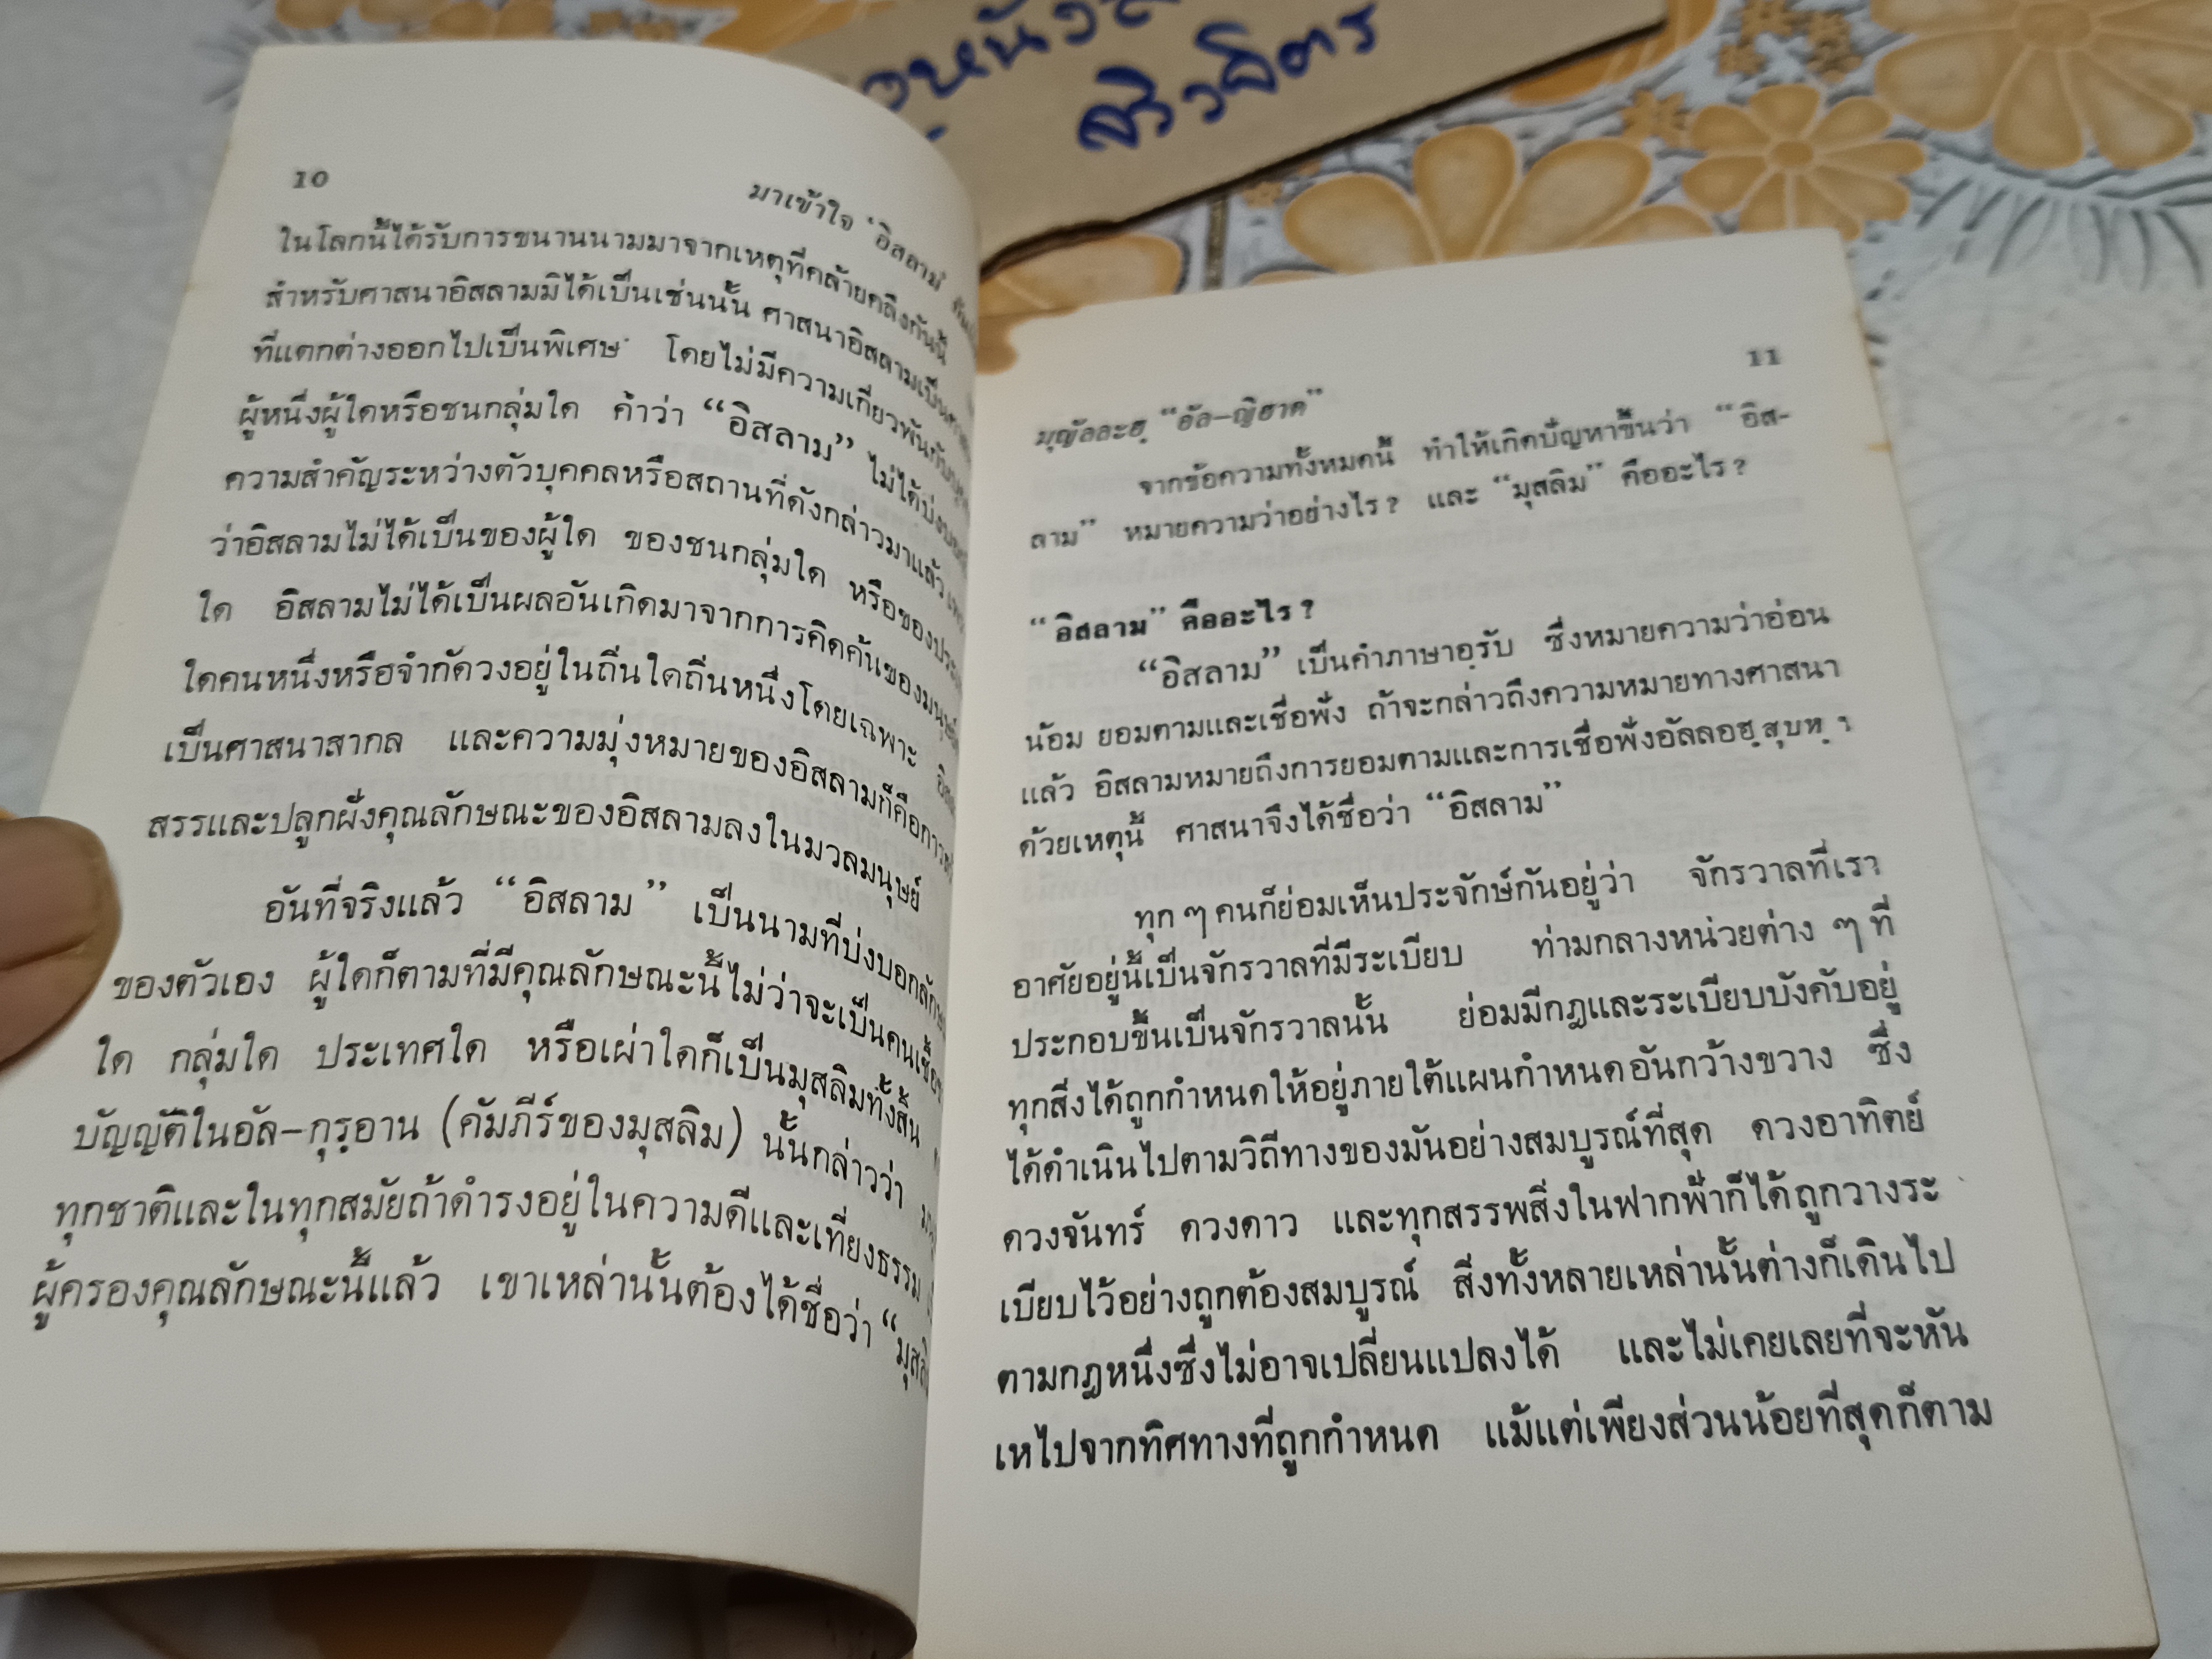 ศิวจิตร
10
มาเข้าใจ "อิสลาม" กัน
ในโลกนี้ได้รับการขนานนามมาจากเหตุที่คล้ายคลึงกันนี้
สำหรับศาสนาอิสลามมิได้เป็นเช่นนั้น ศาสนาอิสลามเป็น
ที่แตกต่างออกไปเป็นพิเศษ โดยไม่มีความเกี่ยวพันกับ
ผู้หนึ่งผู้ใดหรือชนกลุ่มใด คำว่า “อิสลาม” ไม่ได้บ่ง
ความสำคัญระหว่างตัวบุคคลหรือสถานที่ดังกล่าวมาแล้ว
ว่าอิสลามไม่ได้เป็นของผู้ใด ของชนกลุ่มใด หรือของ
ใด อิสลามไม่ได้เป็นผลอันเกิดมาจากการคิดค้นของ
ใดคนหนึ่งหรือจำกัดวงอยู่ในถิ่นใดถิ่นหนึ่งโดยเฉพาะ
เป็นศาสนาสากล และความมุ่งหมายของอิสลามก็คือการ
สรรและปลูกฝังคุณลักษณะของอิสลามลงในมวลมนุษย์
อันที่จริงแล้ว “อิสลาม” เป็นนามที่บ่งบอก
ของตัวเอง ผู้ใดก็ตามที่มีคุณลักษณะนี้ไม่ว่าจะเป็นคน
ใด กลุ่มใด ประเทศใด หรือเผ่าใดก็เป็นมุสลิมทั้งสิ้น
บัญญัติในอัล–กุรฺอาน (คัมภีร์ของมุสลิม) นั้นกล่าวว่า
ทุกชาติและในทุกสมัยถ้าดำรงอยู่ในความดีและเที่ยงธรรม
ผู้ครองคุณลักษณะนี้แล้ว เขาเหล่านั้นต้องได้ชื่อว่า
11
มุญัลละฮฺ “อัล–ญิฮาด”
จากข้อความทั้งหมดนี้ ทำให้เกิดปัญหาขึ้นว่า “อิส-
ลาม” หมายความว่าอย่างไร? และ “มุสลิม” คืออะไร?
“อิสลาม” คืออะไร?
“อิสลาม” เป็นคำภาษาอฺรับ ซึ่งหมายความว่าอ่อน
น้อม ยอมตามและเชื่อฟัง ถ้าจะกล่าวถึงความหมายทางศาสนา
แล้ว อิสลามหมายถึงการยอมตามและการเชื่อฟังอัลลอฮฺสุบหฺ ฯ
ด้วยเหตุนี้ ศาสนาจึงได้ชื่อว่า “อิสลาม”
ทุก ๆ คนก็ย่อมเห็นประจักษ์กันอยู่ว่า จักรวาลที่เรา
อาศัยอยู่นี้เป็นจักรวาลที่มีระเบียบ ท่ามกลางหน่วยต่าง ๆ ที่
ประกอบขึ้นเป็นจักรวาลนั้น ย่อมมีกฎและระเบียบบังคับอยู่
ทุกสิ่งได้ถูกกำหนดให้อยู่ภายใต้แผนกำหนดอันกว้างขวาง ซึ่ง
ได้ดำเนินไปตามวิถีทางของมันอย่างสมบูรณ์ที่สุด ดวงอาทิตย์
ดวงจันทร์ ดวงดาว และทุกสรรพสิ่งในฟากฟ้าก็ได้ถูกวางระ
เบียบไว้อย่างถูกต้องสมบูรณ์ สิ่งทั้งหลายเหล่านั้นต่างก็เดินไป
ตามกฎหนึ่งซึ่งไม่อาจเปลี่ยนแปลงได้ และไม่เคยเลยที่จะหัน
เหไปจากทิศทางที่ถูกกำหนด แม้แต่เพียงส่วนน้อยที่สุดก็ตาม